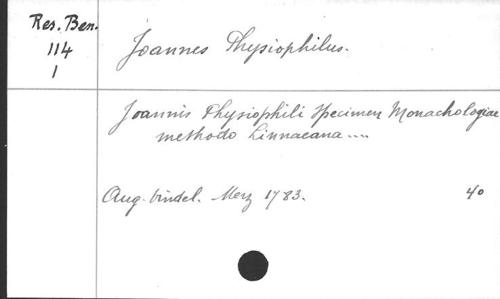 Res. Ben.
114
1
Joannes Physiophilus.
Joannis Physiophili Specimen Monachologiae
methodo Linnaeana ....
Aug. Vindel. Merz 1783.
4o